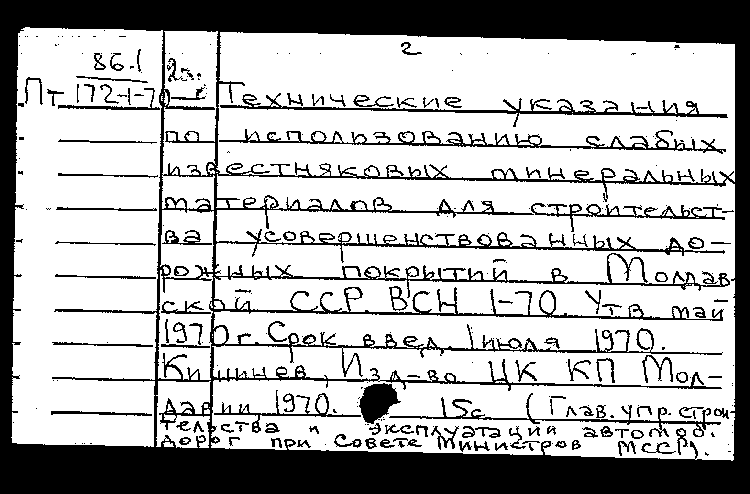 2
86.1 2э.
Пт 172-1-70 Технические указания
по использованию слабых
известняковых минеральных
материалов для строительст-
ва усовершенствованных до-
рожных покрытий в Молдав-
ской ССР. ВСН 1-70. Утв. май
1970г. Срок введ. 1 июля 1970.
Кишинев, Изд-во ЦК КП Мол-
давии, 1970. 15с. (Глав. упр. строи-
тельства и эксплуатации автомоб.
дорог при Совете Министров МССР).